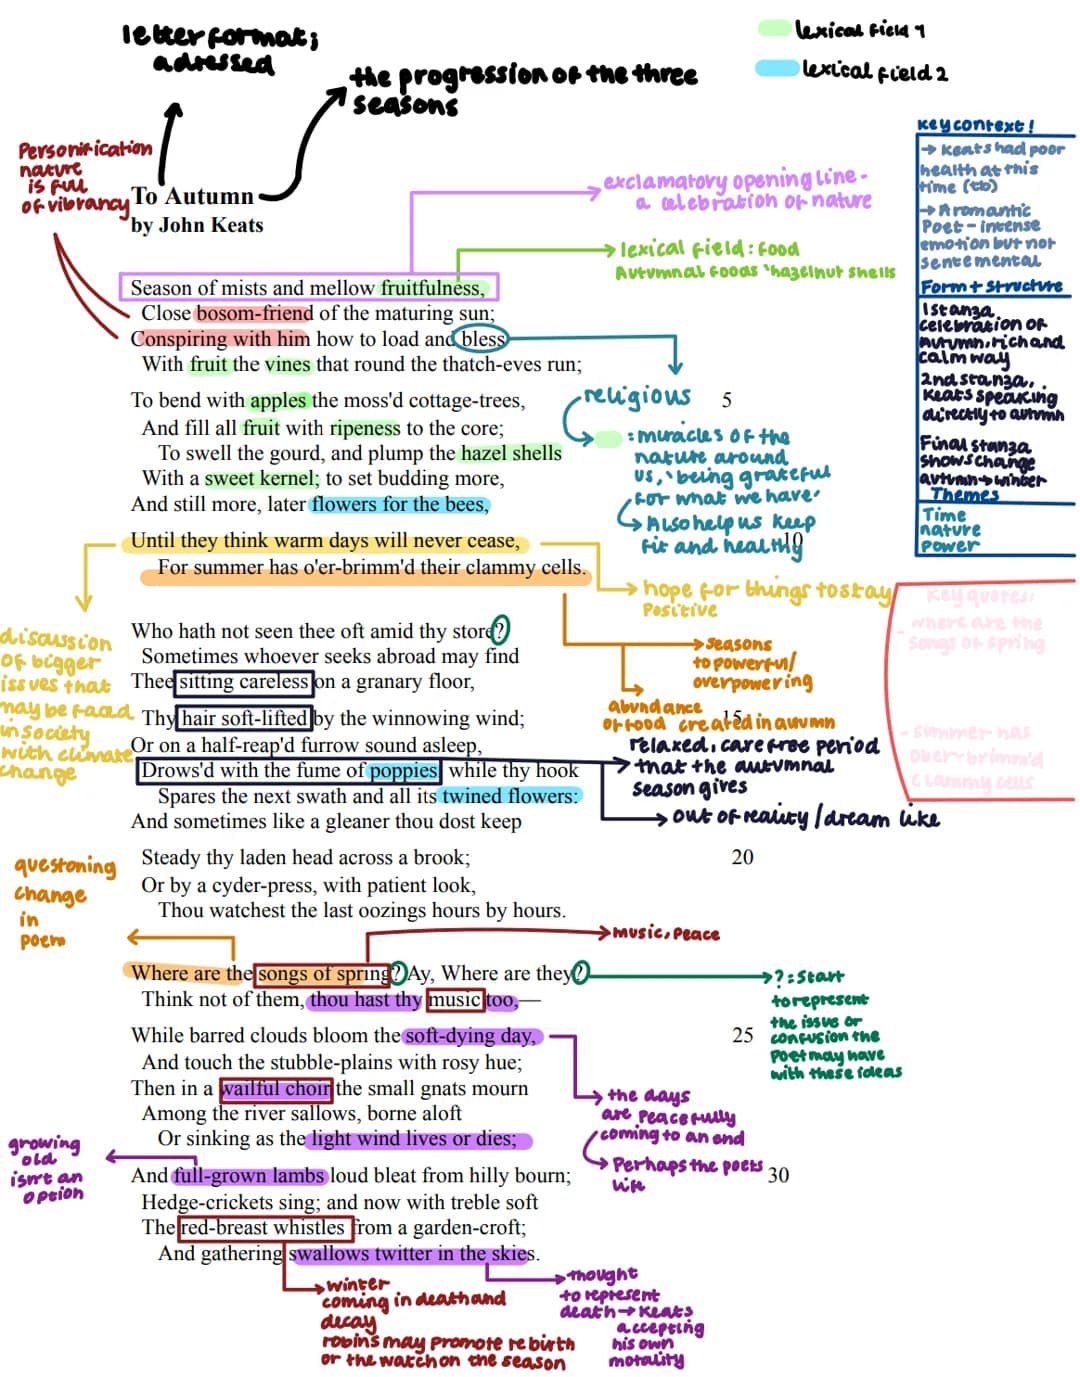 letter format;
adressed
the progression of the three
seasons
lexical field 1
lexical field 2
Personification
nature
is full
of vibrancy
To Autumn
by John Keats
exclamatory opening line -
a celebration of nature
lexical field: food
Autumnal foods 'hazelnut shells
Key context!
→ Keats had poor
health at this
time (tb)
→ A romantic
Poet - intense
emotion but not
sentemental
Form + structure
1stanza
celebration of
autumn, rich and
calm way
2nd stanza,
Keats speaking
directly to autumn
Final stanza
shows change
autumn → winter
Themes
Time
nature
power
Season of mists and mellow fruitfulness,
Close bosom-friend of the maturing sun;
Conspiring with him how to load and bless
With fruit the vines that round the thatch-eves run;
To bend with apples the moss'd cottage-trees, 5
And fill all fruit with ripeness to the core;
To swell the gourd, and plump the hazel shells
With a sweet kernel; to set budding more,
And still more, later flowers for the bees,
Until they think warm days will never cease, 10
For summer has o'er-brimm'd their clammy cells.
religious
: miracles of the
nature around
us, 'being grateful
for what we have'
Also help us keep
fit and healthy
hope for things to stay
Positive
discussion
of bigger
issues that
may be faced
in society
with climate
change
seasons
to powerful/
overpowering
abundance
of food created in autumn
Key quotes:
- where are the
songs of spring
- summer has
ober-brimm'd
clammy cells
Who hath not seen thee oft amid thy store?
Sometimes whoever seeks abroad may find
Thee sitting careless on a granary floor,
Thy hair soft-lifted by the winnowing wind; 15
Or on a half-reap'd furrow sound asleep,
Drows'd with the fume of poppies, while thy hook
Spares the next swath and all its twined flowers:
And sometimes like a gleaner thou dost keep
Steady thy laden head across a brook; 20
Or by a cyder-press, with patient look,
Thou watchest the last oozings hours by hours.
relaxed, care free period
that the autumnal
season gives
out of reality / dream like
questoning
change
in
poem
music, Peace
Where are the songs of spring? Ay, Where are they?
Think not of them, thou hast thy music too,—
While barred clouds bloom the soft-dying day, 25
And touch the stubble-plains with rosy hue;
Then in a wailful choir the small gnats mourn
Among the river sallows, borne aloft
Or sinking as the light wind lives or dies;
And full-grown lambs loud bleat from hilly bourn; 30
Hedge-crickets sing; and now with treble soft
The red-breast whistles from a garden-croft;
And gathering swallows twitter in the skies.
?: Start
to represent
the issue or
confusion the
Poet may have
with these ideas
the days
are peacefully
coming to an end
Perhaps the poets
life
growing
old
isn't an
option
winter
coming in death and
decay
robins may promote rebirth
or the watch on the season
thought
to represent
death → Keats
accepting
his own
motality